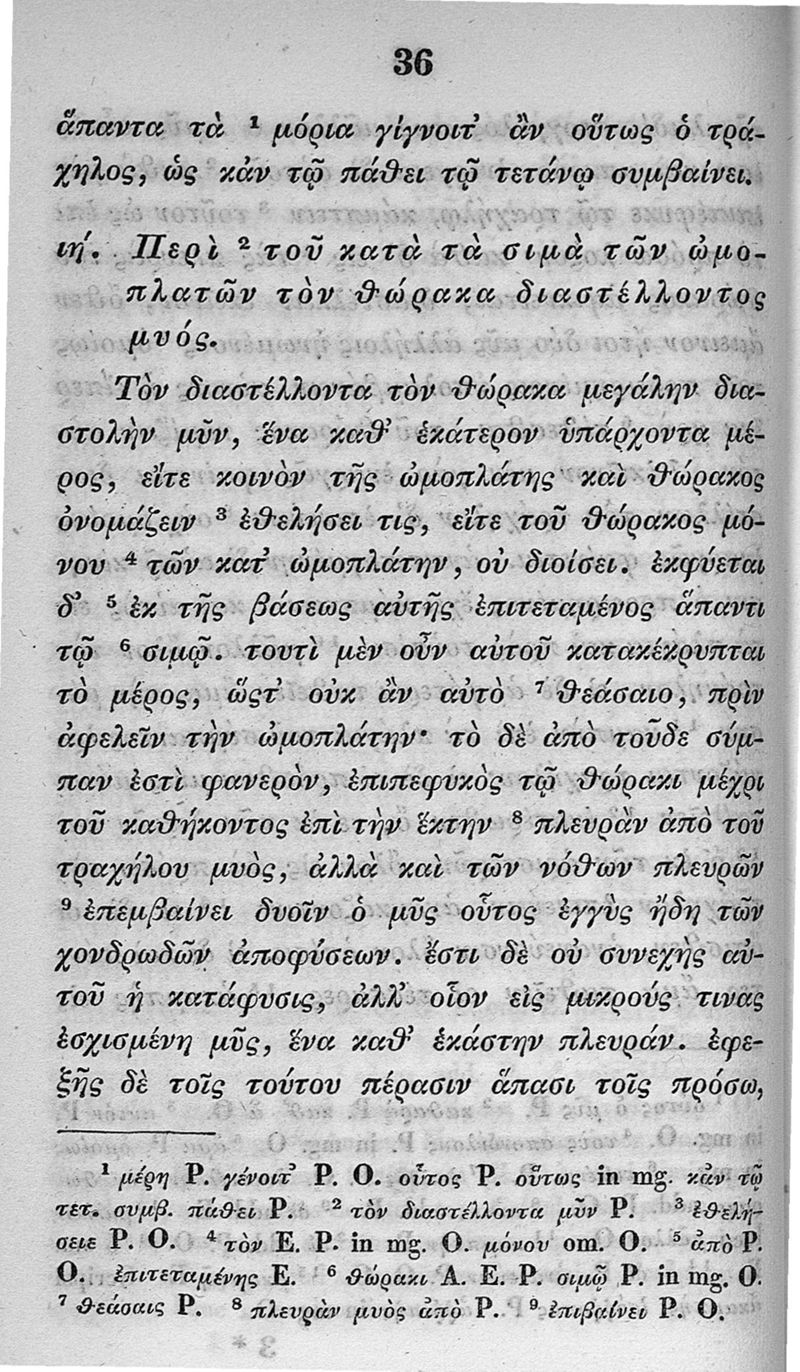 36
ἅπαντα τὰ ¹ μόρια γίγνοιτ᾽ ἂν οὕτως ὁ τρά-
χηλος, ὡς κἀν τῷ πάθει τῷ τετάνῳ συμβαίνει.
ιή. Περὶ ² τοῦ κατὰ τὰ σιμὰ τῶν ὠμο-
πλατῶν τὸν θώρακα διαστέλλοντος
μυός.
Τὸν διαστέλλοντα τὸν θώρακα μεγάλην δια-
στολὴν μῦν, ἕνα καθ᾽ ἑκάτερον ὑπάρχοντα μέ-
ρος, εἴτε κοινὸν τῆς ὠμοπλάτης καὶ θώρακος
ὀνομάζειν ³ ἐθελήσει τις, εἴτε τοῦ θώρακος μό-
νου ⁴ τῶν κατ᾽ ὠμοπλάτην, οὐ διοίσει. ἐκφύεται
δ᾽ ⁵ ἐκ τῆς βάσεως αὐτῆς ἐπιτεταμένος ἅπαντι
τῷ ⁶ σιμῷ. τουτὶ μὲν οὖν αὐτοῦ κατακέκρυπται
τὸ μέρος, ὥςτ᾽ οὐκ ἂν αὐτὸ ⁷ θεάσαιο, πρὶν
ἀφελεῖν τὴν ὠμοπλάτην· τὸ δὲ ἀπὸ τοῦδε σύμ-
παν ἐστὶ φανερὸν, ἐπιπεφυκὸς τῷ θώρακι μέχρι
τοῦ καθήκοντος ἐπὶ τὴν ἕκτην ⁸ πλευρὰν ἀπὸ τοῦ
τραχήλου μυὸς, ἀλλὰ καὶ τῶν νόθων πλευρῶν
⁹ ἐπεμβαίνει δυοῖν ὁ μῦς οὗτος ἐγγὺς ἤδη τῶν
χονδρωδῶν ἀποφύσεων. ἔστι δὲ οὐ συνεχὴς αὐ-
τοῦ ἡ κατάφυσις, ἀλλ᾽ οἷον εἰς μικρούς τινας
ἐσχισμένη μῦς, ἕνα καθ᾽ ἑκάστην πλευράν. ἐφε-
ξῆς δὲ τοῖς τούτου πέρασιν ἅπασι τοῖς πρόσω,
¹ μέρη P. γένοιτ᾽ P. O. οὗτος P. οὕτως in mg. κἀν τῷ
τετ. συμβ. πάθει P. ² τὸν διαστέλλοντα μῦν P. ³ ἐθελή-
σειε P. O. ⁴ τὸν E. P. in mg. O. μόνου om. O. ⁵ ἀπὸ P.
O. ἐπιτεταμένης E. ⁶ θώρακι A. E. P. σιμῷ P. in mg. O.
⁷ θεάσαις P. ⁸ πλευρὰν μυὸς ἀπὸ P. ⁹ ἐπιβαίνει P. O.